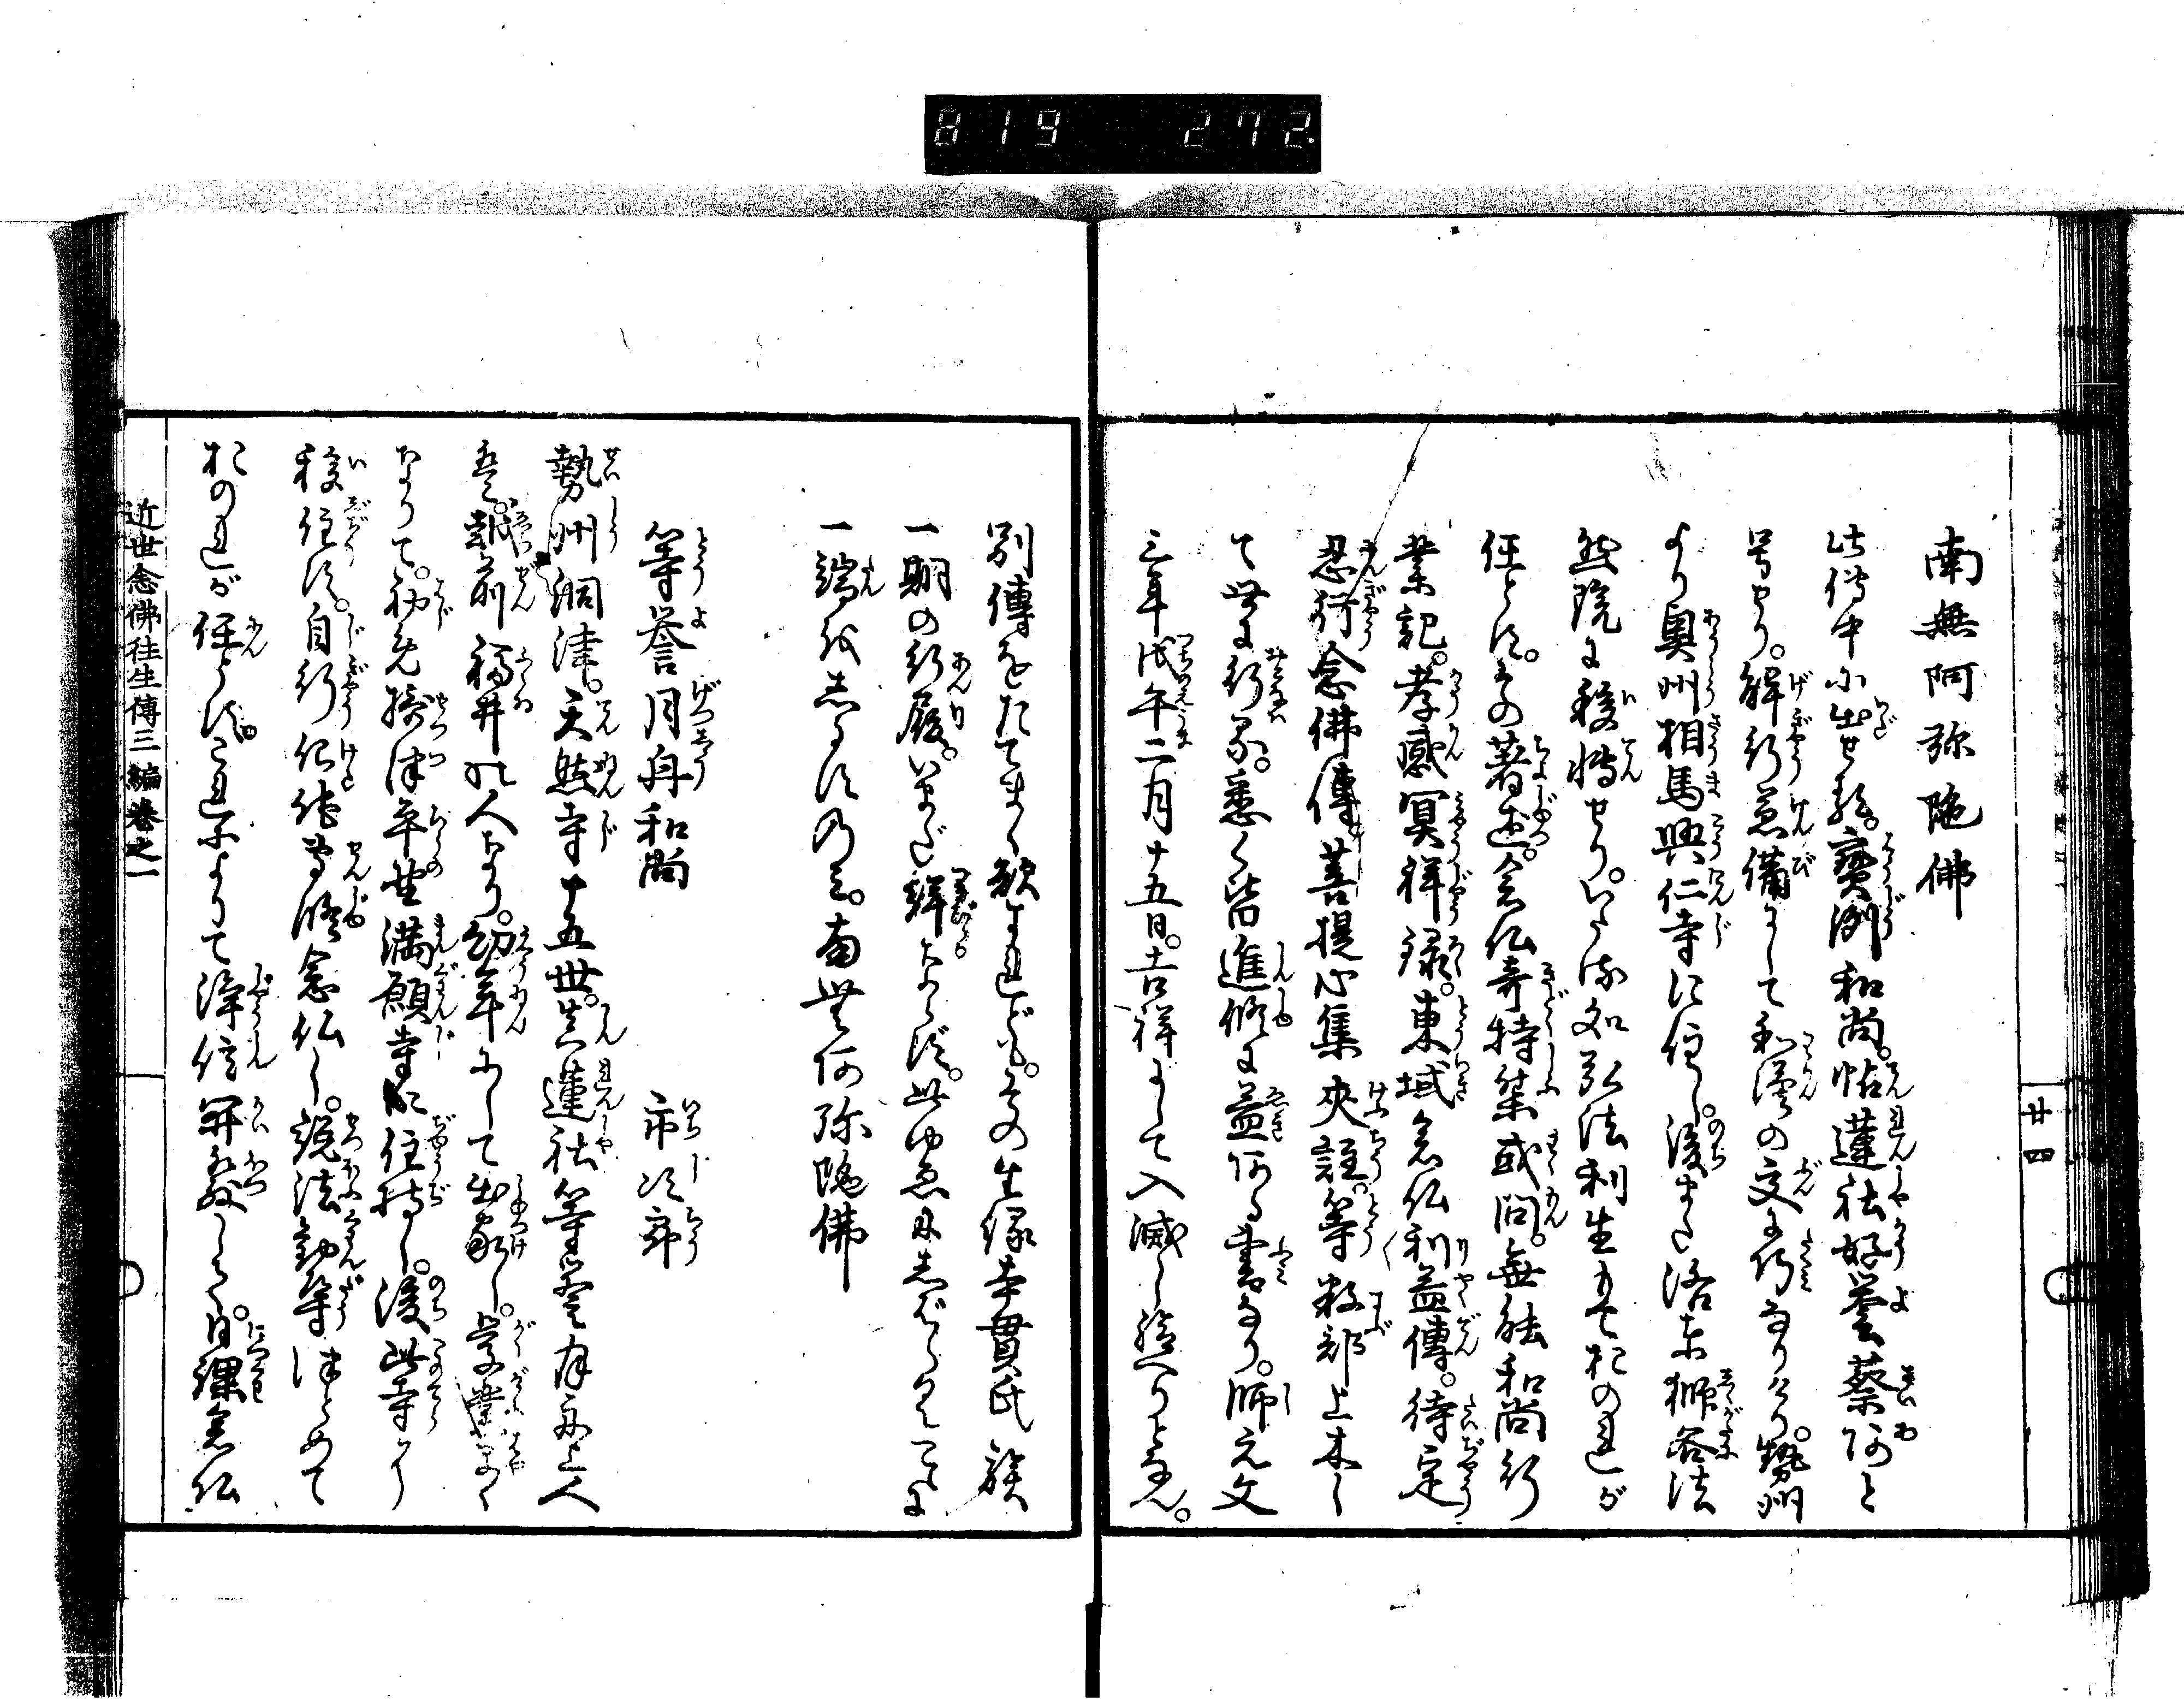 819 272
廿四
南無阿弥陀佛
此傳中に出せる。寶洲和尚。怙蓮社好譽蔡阿と
号せり。解行兼備にして和漢の文に巧なりけり。勢州
より奥州相馬興仁寺に住し。後また洛東獅谷法
然院に移轉せり。いたる処弘法利生もておのれが
任とす。その著述。念仏奇特集或問。無能和尚行
業記。孝感冥祥録。東域念仏利益傳。待定
忍行念佛傳菩提心集夾註。等数部上木し
て世に行る。悉く皆進修に益ある書なり。師元文
三年戊午二月十五日。吉祥にして入滅し給へりとなん。
別傳をたてまく欲すれども。その生縁本貫氏族
一期の行履。いまだ詳ならず。此ゆゑにしばらくこゝに
一端をしるすのみ。南無阿弥陀佛
等譽月舟和尚　市次郎
勢州洞津。天然寺十五世。真蓮社等譽月舟上人
は。越前福井の人なり。幼年にして出家し。学業はやく
なりて。初め摂津平野満願寺に住持し。後此寺に
移住す。自行化他専修念仏し。説法勧導つとめて
おのれが任とす。これによりて淨信開発し。日課念仏
近世念佛往生傳三編巻之一